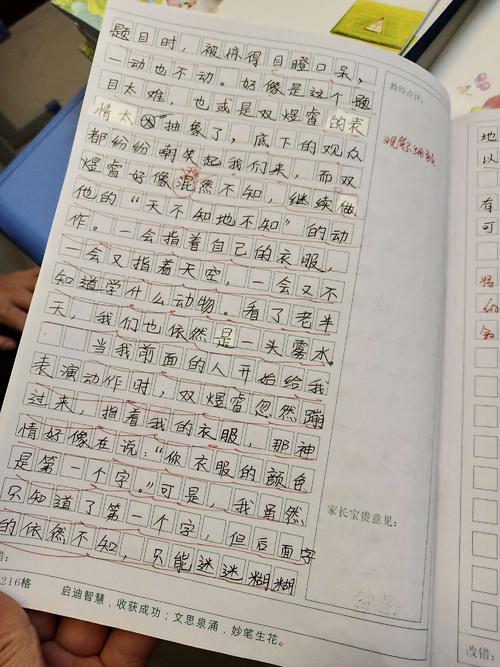 题目时，被惊得目瞪口呆，
一动也不动。好像是这个题
目太难，也或是双煜睿的表
情太抽象了，底下的观众
都纷纷嘲笑起我们来，而双
煜睿好像混然不知，继续做
他的“天不知地不知”的动
作。一会指着自己的衣服，
一会又指着天空，一会又不
知道学什么动物。看了老半
天，我们也依然是一头雾水。
当我前面的人开始给我
表演动作时，双煜睿忽然蹦
过来，指着我的衣服，那神
情好像在说：“你衣服的颜色
是第一个字。”可是，我虽然
只知道了第一个字，但后面字
的依然不知，只能迷迷糊糊
216格
启迪智慧，收获成功；文思泉涌，妙笔生花。
教师点评：
家长宝贵意见：
地
以
有
可
改错：